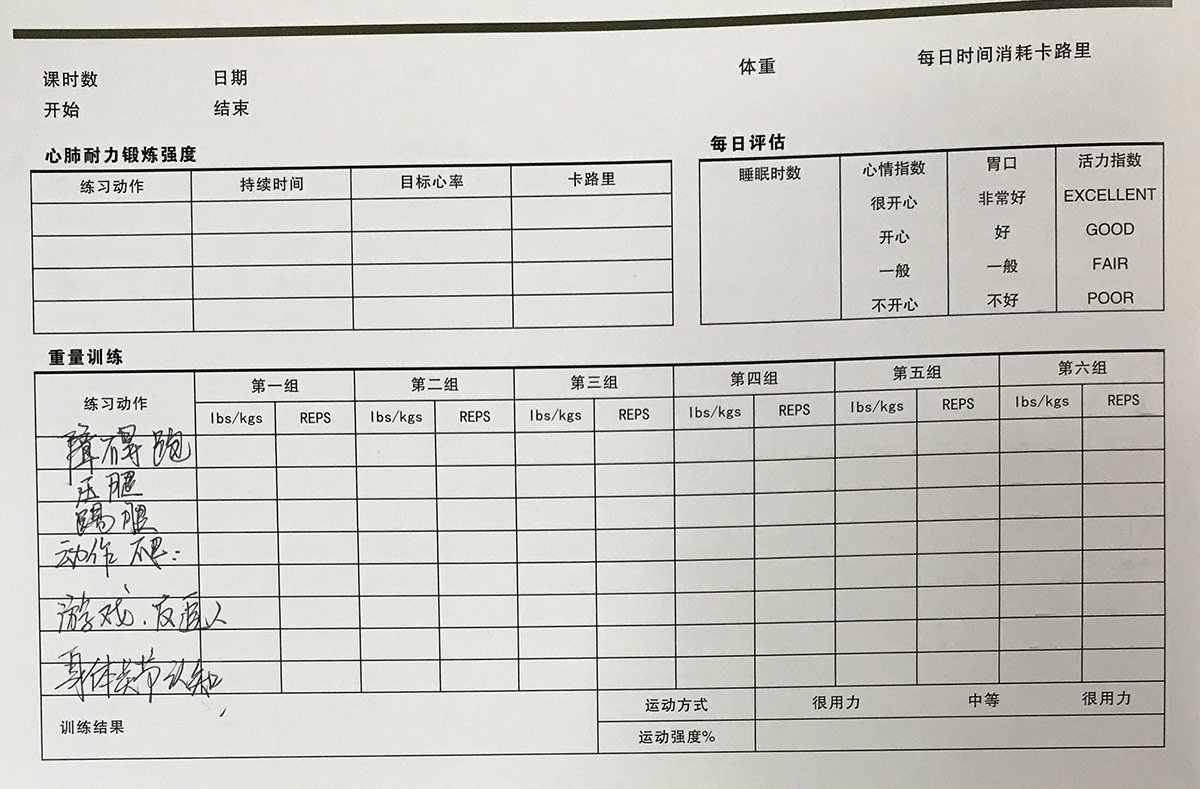 课时数 日期 体重 每日时间消耗卡路里
开始 结束
心肺耐力锻炼强度
练习动作 持续时间 目标心率 卡路里
每日评估
睡眠时数 心情指数 胃口 活力指数
很开心 非常好 EXCELLENT
开心 好 GOOD
一般 一般 FAIR
不开心 不好 POOR
重量训练
练习动作 第一组 第二组 第三组 第四组 第五组 第六组
lbs/kgs REPS lbs/kgs REPS lbs/kgs REPS lbs/kgs REPS lbs/kgs REPS lbs/kgs REPS
障碍跑
压腿
踢腿
动作
游戏.
身体 认知
训练结果 运动方式 很用力 中等 很用力
运动强度%